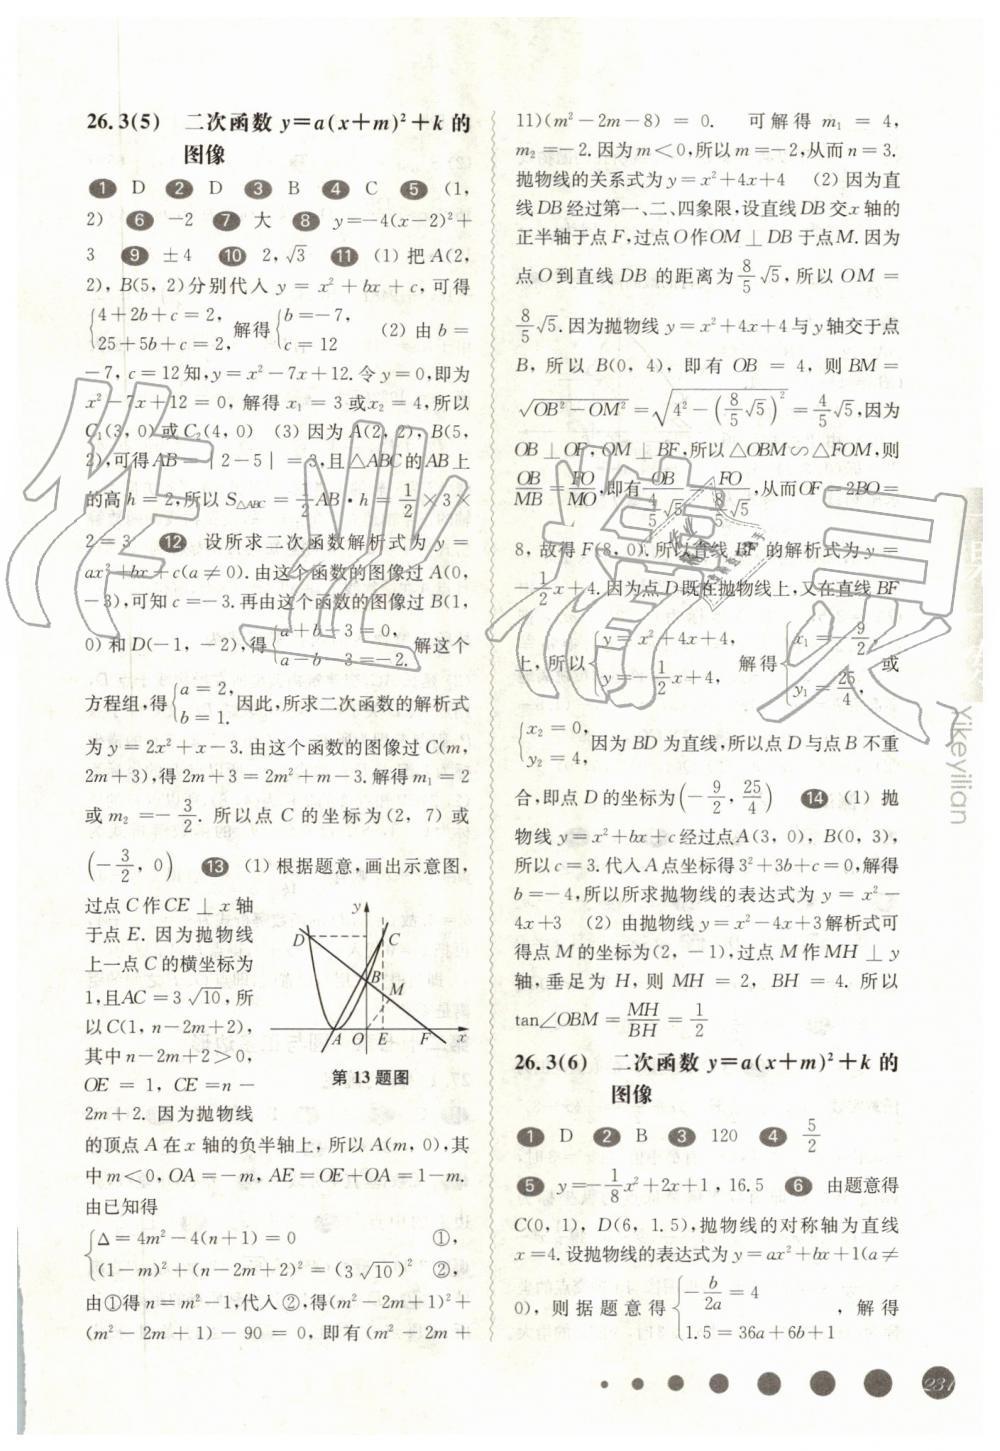 26.3(5) 二次函数 y=a(x+m)²+k 的
图像
1 D 2 D 3 B 4 C 5 (1,
2) 6 －2 7 大 8 y=－4(x－2)²+
3 9 ±4 10 2,√3 11 (1) 把 A(2,
2), B(5, 2)分别代入 y = x² + bx + c, 可得
{4+2b+c=2, 25+5b+c=2, 解得 {b=－7, c=12 (2) 由 b=
－7, c=12知, y=x²－7x+12. 令 y=0,即为
x²－7x+12=0, 解得 x₁=3 或 x₂=4, 所以
C₁(3, 0) 或 C₂(4, 0) (3) 因为 A(2, 2), B(5,
2),可得AB=|2－5|=3,且△ABC的AB上
的高 h=2,所以 S△ABC=1/2 AB·h=1/2×3×
2=3 12 设所求二次函数解析式为 y=
ax²+bx+c(a≠0).由这个函数的图像过 A(0,
－3),可知 c=－3.再由这个函数的图像过 B(1,
0) 和 D(－1, －2),得 {a+b－3=0, a－b－3=－2. 解这个
方程组,得 {a=2, b=1. 因此,所求二次函数的解析式
为 y=2x²+x－3.由这个函数的图像过 C(m,
2m+3),得 2m+3=2m²+m－3.解得 m₁=2
或 m₂=－3/2. 所以点 C 的坐标为(2, 7) 或
(－3/2, 0) 13 (1) 根据题意,画出示意图,
过点 C 作 CE ⊥ x 轴
于点 E. 因为抛物线
上一点 C 的横坐标为
1,且AC=3√10,所
以 C(1, n－2m+2),
其中 n－2m+2>0,
OE = 1, CE =n－
2m+2. 因为抛物线
y
D C
B
M
A O E F x
第13题图
的顶点 A 在 x 轴的负半轴上,所以 A(m, 0),其
中 m<0,OA=－m,AE=OE+OA=1－m.
由已知得
{Δ=4m²－4(n+1)=0 ①,
(1－m)²+(n－2m+2)²=(3√10)² ②,
由①得 n=m²－1,代入②,得(m²－2m+1)²+
(m²－2m+1)－90=0,即有(m²－2m+
11)(m²－2m－8) = 0. 可解得 m₁ = 4,
m₂=－2.因为 m<0,所以 m=－2,从而 n=3.
抛物线的关系式为 y=x²+4x+4 (2) 因为直
线 DB 经过第一、二、四象限,设直线 DB 交 x 轴的
正半轴于点 F,过点 O 作OM ⊥ DB 于点 M. 因为
点 O 到直线 DB 的距离为 8/5√5, 所以 OM =
8/5√5. 因为抛物线 y=x²+4x+4 与 y 轴交于点
B, 所以 B(0, 4), 即有 OB = 4, 则 BM =
√(OB²－OM²)=√(4²－(8/5√5)²)=4/5√5,因为
OB⊥OF,OM⊥BF,所以△OBM∽△FOM,则
OB/MB=FO/MO,即有OB/(4/5√5)=FO/(8/5√5),从而OF=2BO=
8, 故得 F(8, 0). 所以直线 BF 的解析式为 y=
－1/2x+4.因为点 D 既在抛物线上,又在直线 BF
上,所以 {y=x²+4x+4, y=－1/2x+4, 解得 {x₁=－9/2, y₁=25/4, 或
{x₂=0, y₂=4, 因为 BD 为直线,所以点 D 与点 B 不重
合,即点 D 的坐标为(－9/2, 25/4) 14 (1) 抛
物线 y=x²+bx+c 经过点A(3, 0), B(0, 3),
所以 c=3.代入A点坐标得 3²+3b+c=0,解得
b=－4,所以所求抛物线的表达式为 y = x²－
4x+3 (2) 由抛物线 y=x²－4x+3 解析式可
得点 M 的坐标为(2, －1),过点 M 作 MH ⊥ y
轴, 垂足为 H, 则 MH = 2, BH = 4. 所以
tan∠OBM=MH/BH=1/2
26.3(6) 二次函数 y=a(x+m)²+k 的
图像
1 D 2 B 3 120 4 5/2
5 y=－1/8x²+2x+1, 16.5 6 由题意得
C(0, 1), D(6, 1.5),抛物线的对称轴为直线
x=4. 设抛物线的表达式为 y=ax²+bx+1(a≠
0), 则据题意得 {－b/2a=4 1.5=36a+6b+1, 解得
Yikeyilian
231
作业精灵